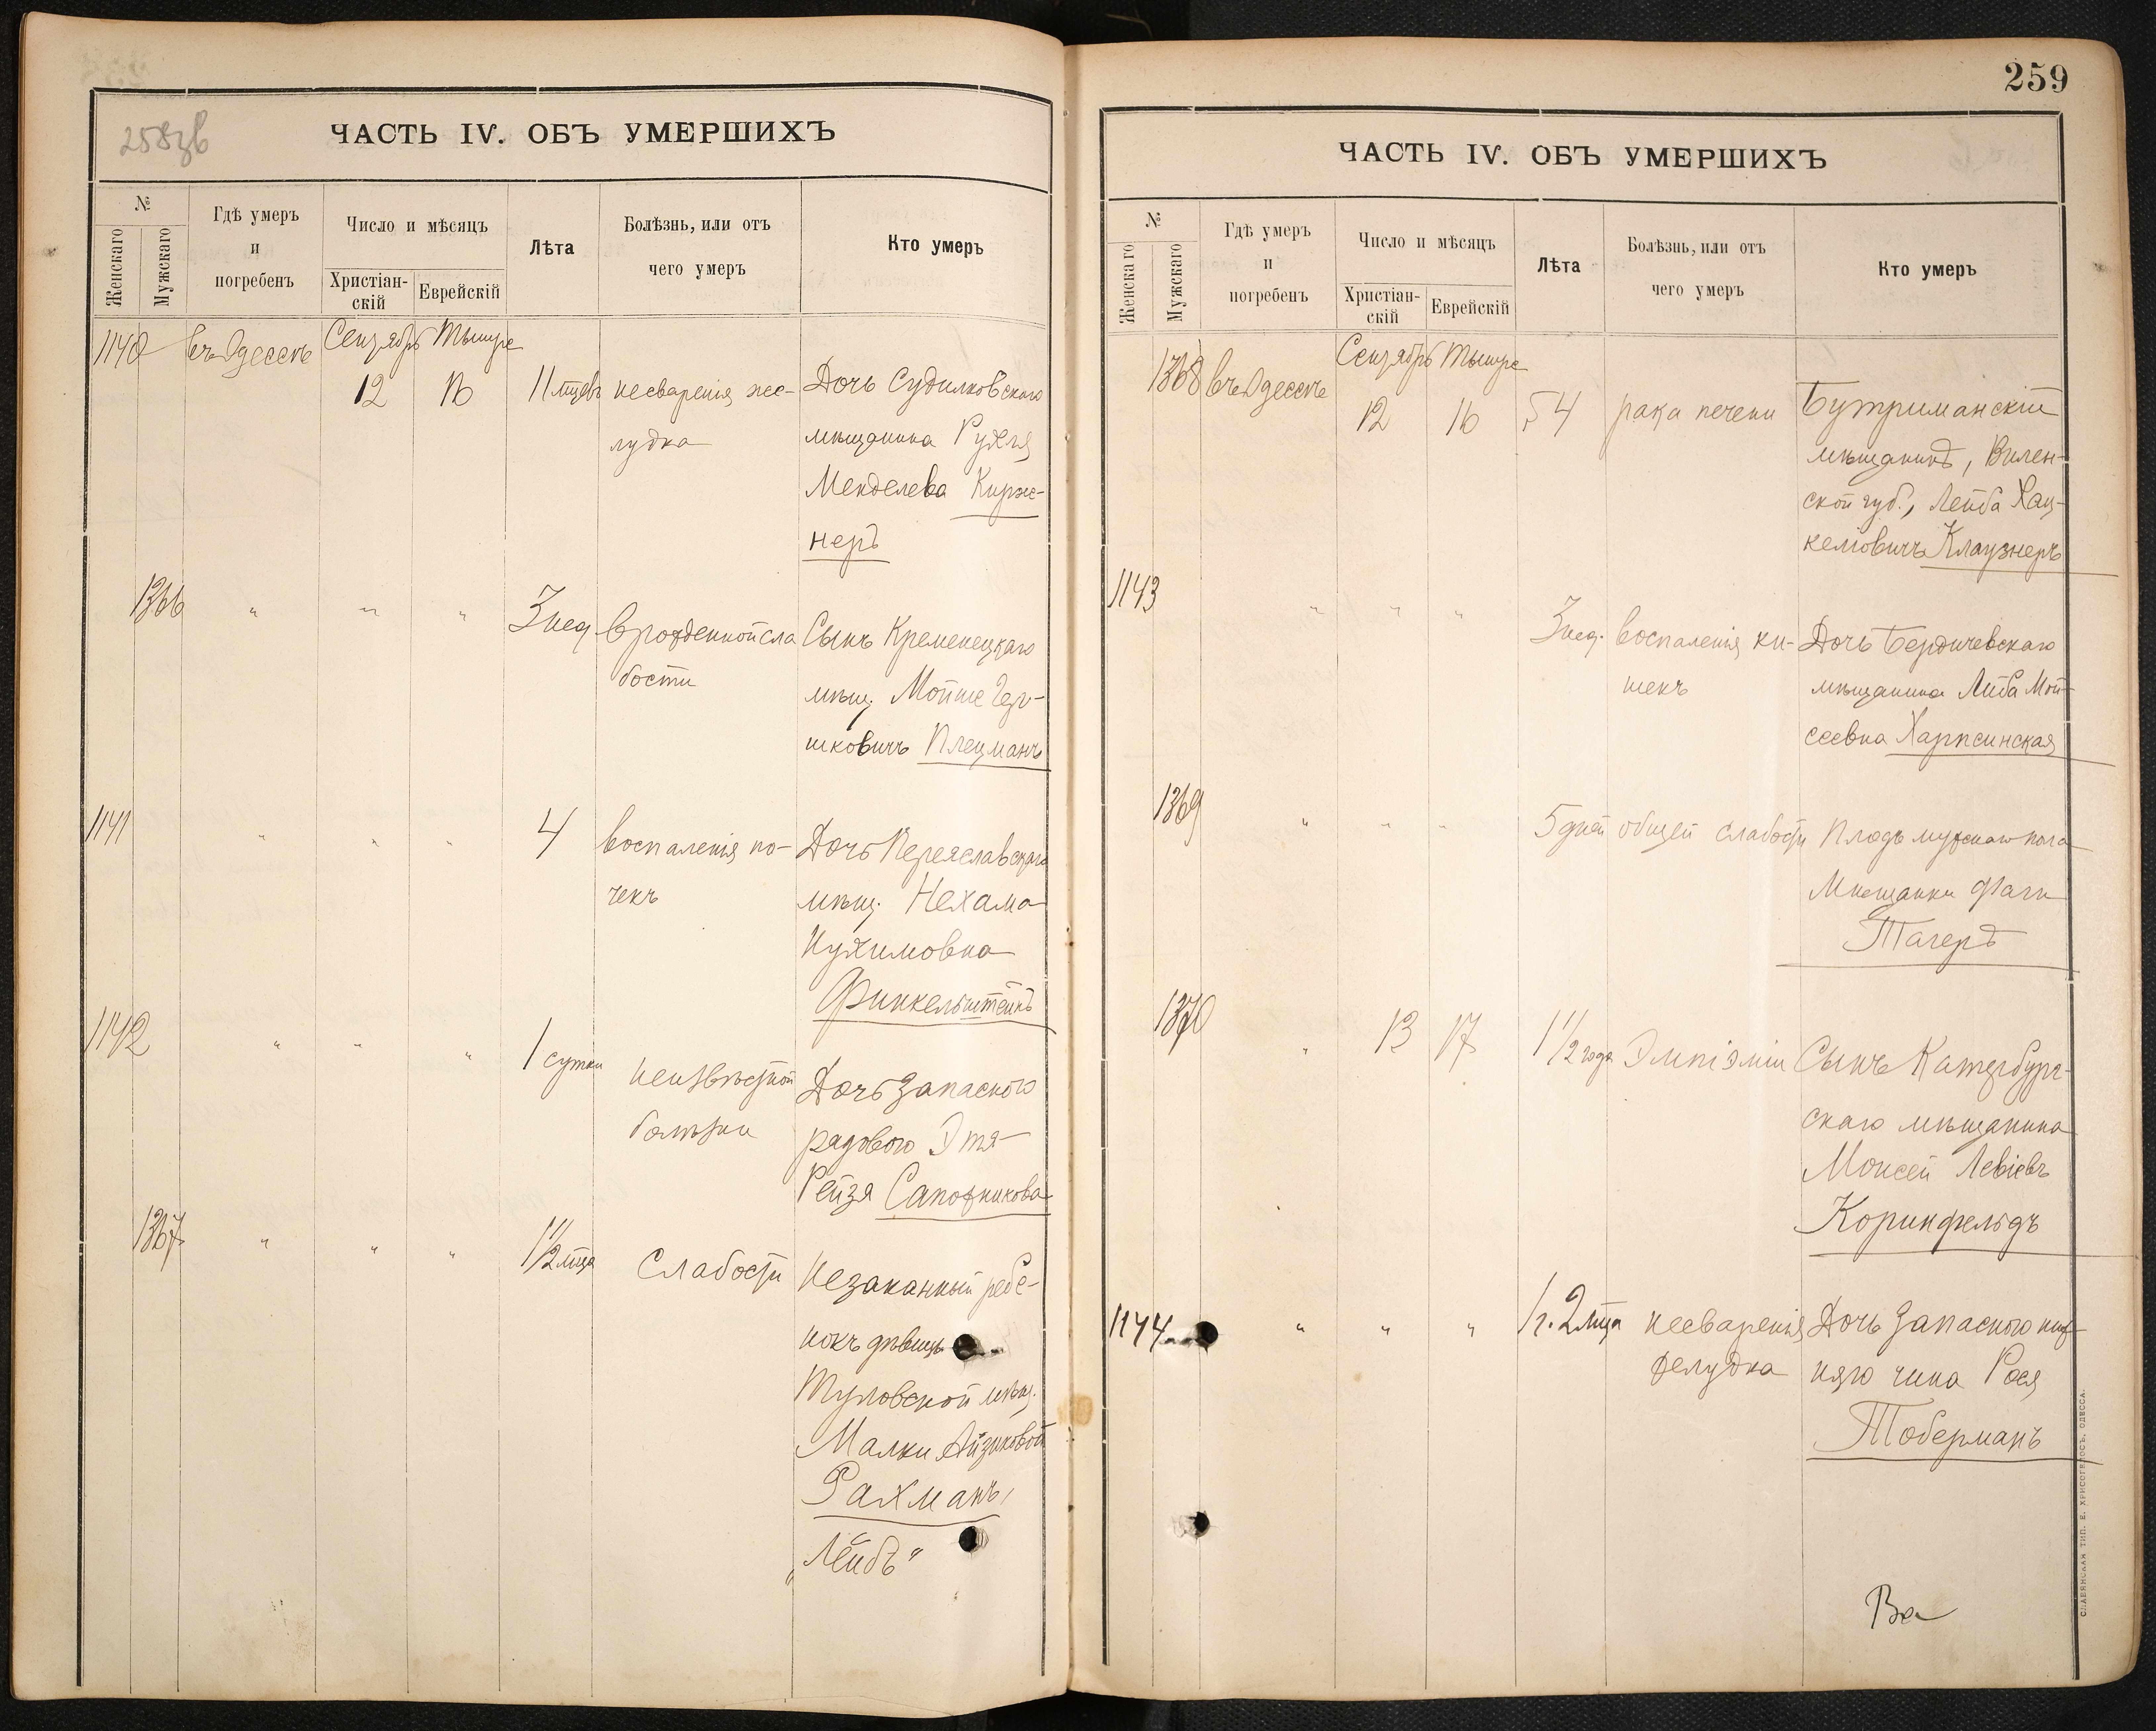 258зв
ЧАСТЬ IV. ОБЪ УМЕРШИХЪ
№
Женскаго
Мужскаго
Гдѣ умеръ
и
погребенъ
Число и мѣсяцъ
Христіан-
скій
Еврейскій
Лѣта
Болѣзнь, или отъ
чего умеръ
Кто умеръ
1140 въ Одессѣ Сентябрь Тышре
12 16 11 мцевъ несваренія же- Дочь Судилковскаго
лудка мѣщанина Рухля
Менделева Кирж-
неръ
1366 " " " 3 нед врожденной сла Сынъ Кременецкаго
бости мѣщ. Мойше Гер-
шковичъ Плецманъ
1141 " " " 4 воспаленія по- Дочь Переяславскаго
чекъ мѣщ. Нехама
Нухимовна
Финкельштейнъ
1142 " " " 1 сутки неизвѣстной Дочь запасного
болѣзни рядового Этя-
Рейзя Сапожникова
1367 " " " 1 1/2 мца Слабости Незаканный ребе-
нокъ дѣвицы
Муловской мѣщ.
Малки Айзиковой
Рахманъ,
"Лейбъ"
259
ЧАСТЬ IV. ОБЪ УМЕРШИХЪ
№
Женскаго
Мужскаго
Гдѣ умеръ
и
погребенъ
Число и мѣсяцъ
Христіан-
скій
Еврейскій
Лѣта
Болѣзнь, или отъ
чего умеръ
Кто умеръ
1368 въ Одессѣ Сентябрь Тышре
12 16 54 рака печени Бутриманскій
мѣщанинъ, Вилен-
ской губ., Лейба Хац-
келіовичъ Клаузнеръ
1143 " " " 3 нед. воспаленія ки- Дочь Бердичевскаго
шекъ мѣщанина Либа Мой-
сеевна Харпсинская
1369 " " " 5 дней общей слабости Плодъ мужскаго пола
Мѣщанки Фаги
Тагеръ
1370 " 13 17 1 1/2 года Эмпіэміи Сынъ Катербург-
скаго мѣщанина
Моисей Левіевъ
Коринфельдъ
1144 " " " 1 г. 2 мца несваренія Дочь запасного ниж-
желудка няго чина Рося
Тоберманъ
Ва
СЛАВЯНСКАЯ ТИП. Е. ХРИСОГЕЛОСЪ, ОДЕССА.